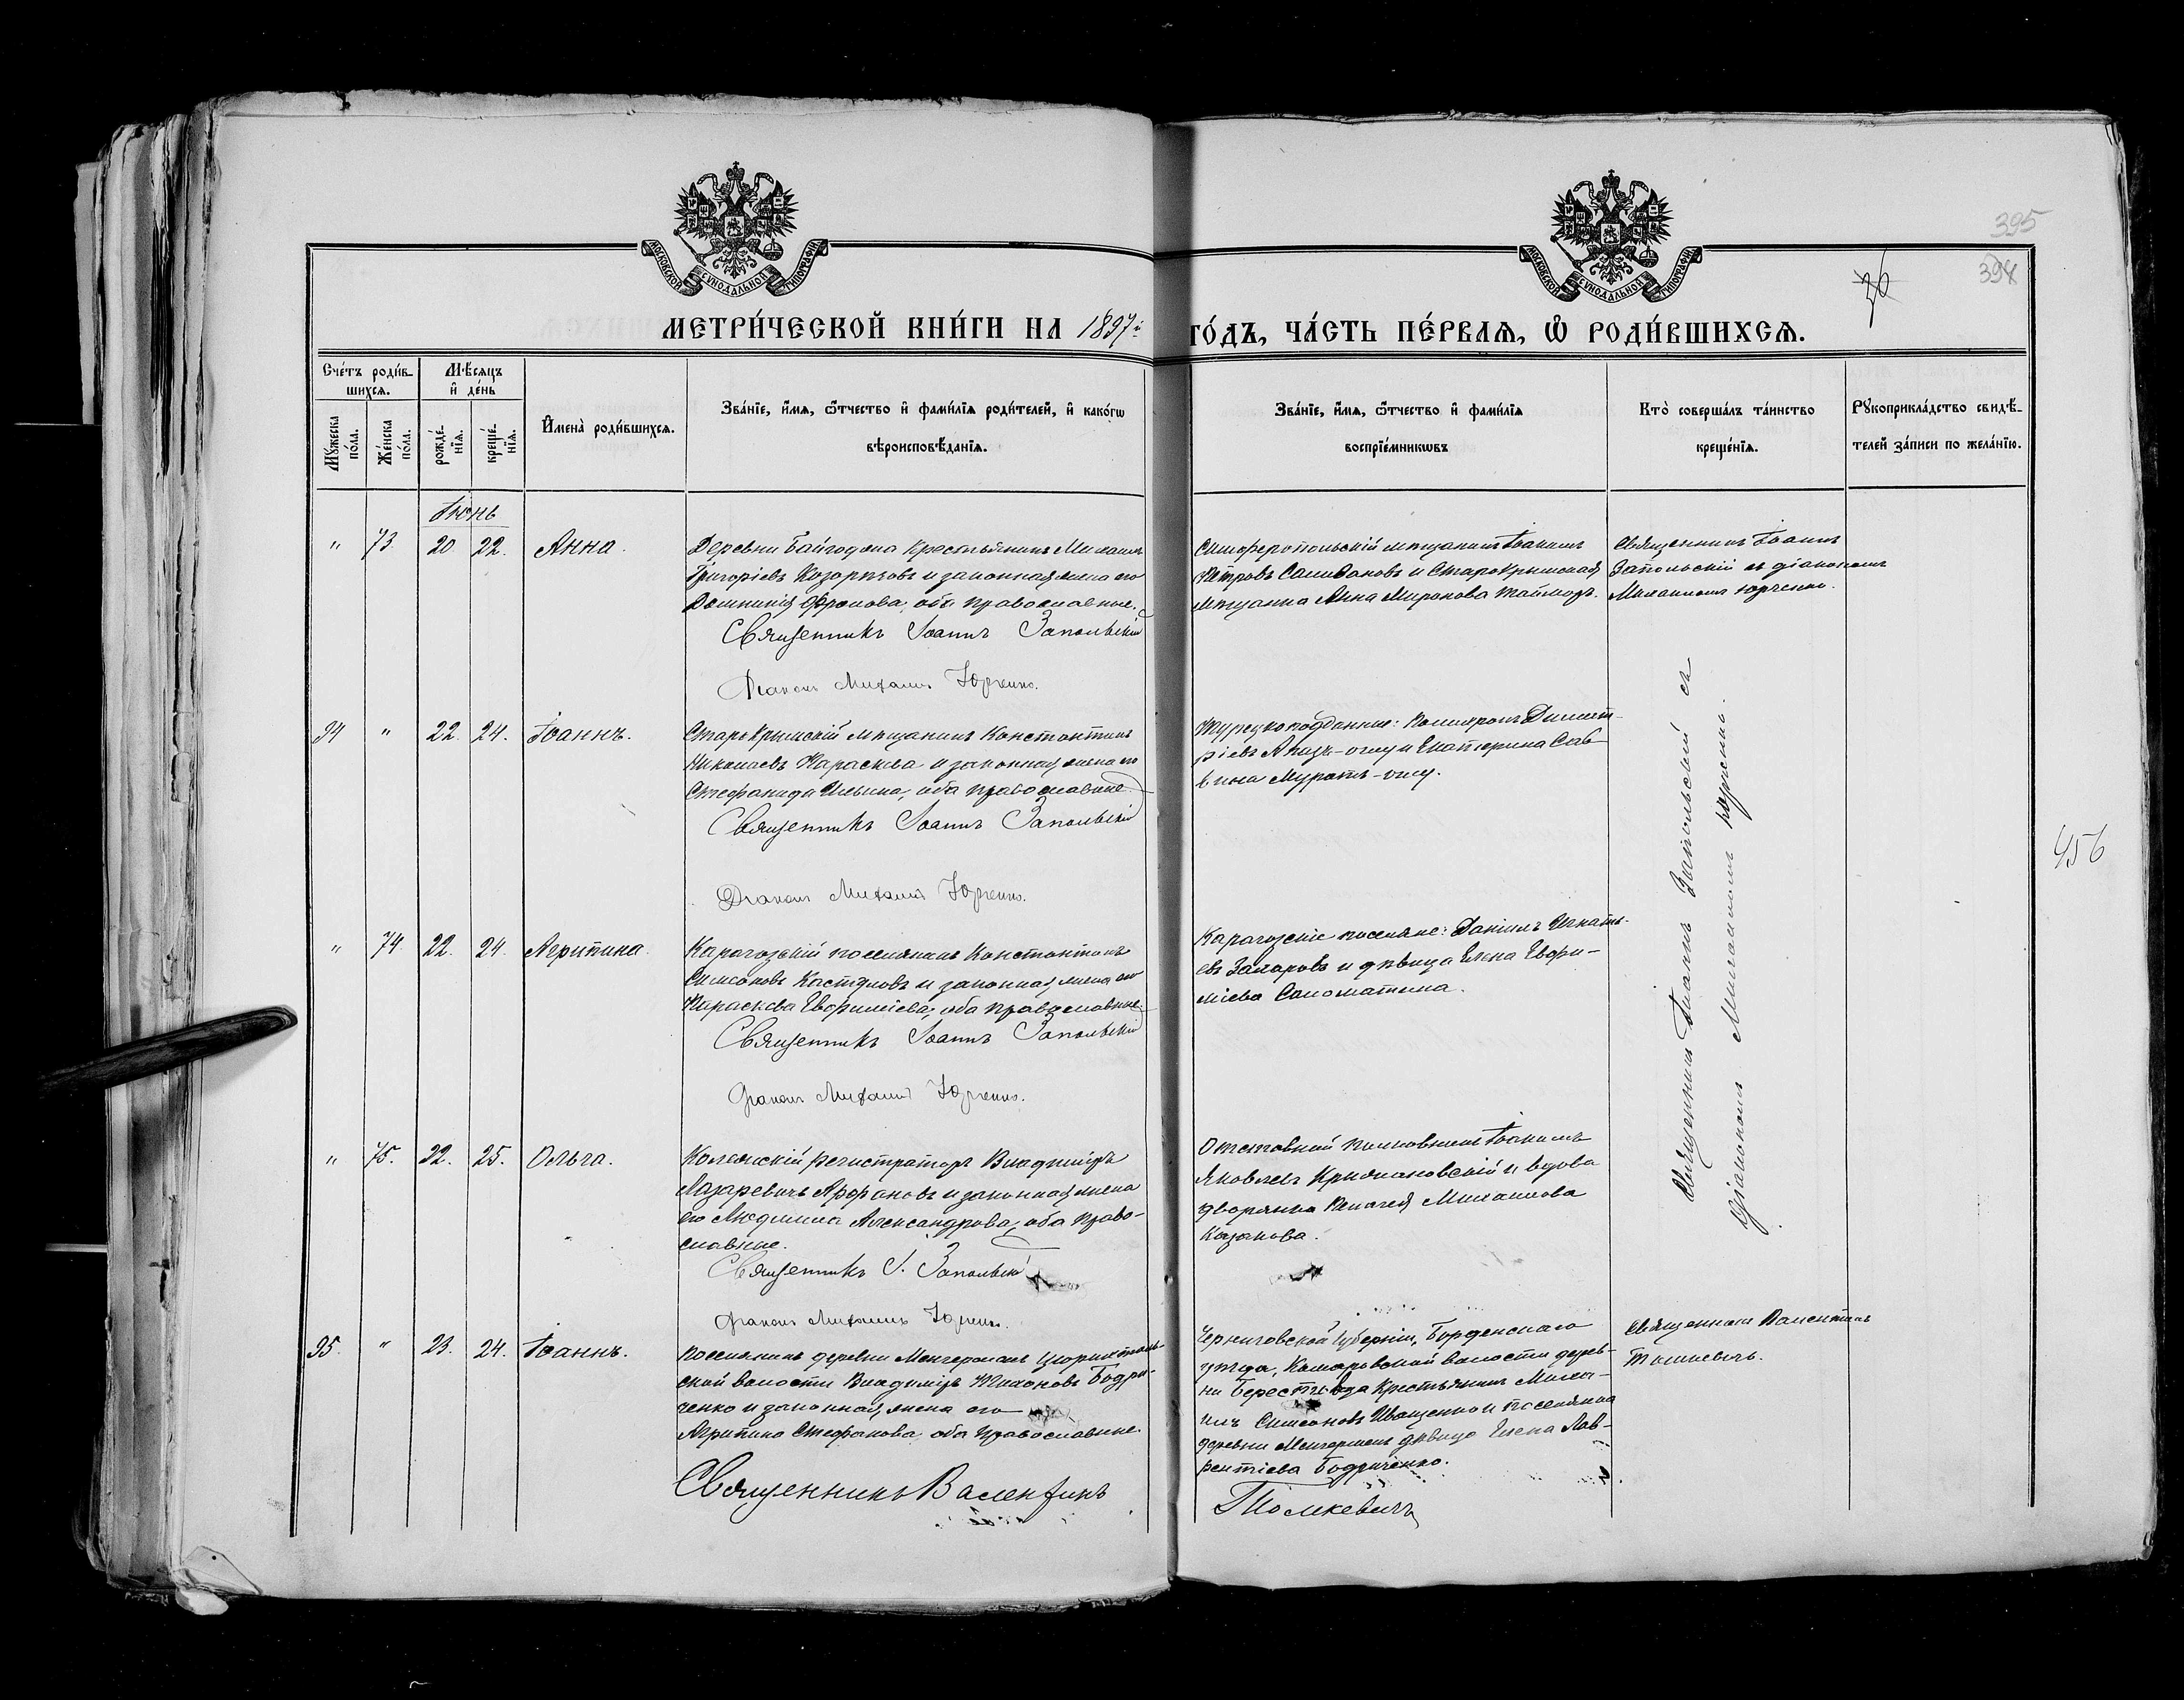 395
394
36
МОСКОВСКОЙ СѴНОДАЛЬНОЙ ТИПОГРАФІИ
МОСКОВСКОЙ СѴНОДАЛЬНОЙ ТИПОГРАФІИ
МЕТРИ́ЧЕСКОЙ КНИ́ГИ НА 1897й
ГО́ДЪ, ЧА́СТЬ ПЕ́РВАѦ, Ѡ҆ РОДИ́ВШИХСѦ.
Сче́тъ роди́в-
шихсѧ.
Мѣ́сѧцъ
и҆ де́нь
Мꙋ́жеска по́ла.
Же́нска по́ла.
рожде́-нїѧ.
креще́-нїѧ.
И҆мена̀ роди́вшихсѧ.
Зва́нїе, и҆́мѧ, ѻ҆́тчество и҆ фами́лїѧ роди́телей, и҆ како́гѡ
вѣроисповѣ́данїѧ.
Зва́нїе, и҆́мѧ, ѻ҆́тчество и҆ фами́лїѧ
воспрїе́мникѡвъ
Кто̀ соверша́лъ та́инство
креще́нїѧ.
Рꙋкоприкла́дство свидѣ́-
телей за́писи по жела́нїю.
Іюнь
" 73 20 22. Анна.
Деревни Байгоджа крестьянинъ Михаилъ
Григоріевъ Козорѣзовъ и законная жена его
Домникія, оба православные.
Священникъ Іоаннъ Запольскій
Діаконъ Михаилъ Юрченко.
Симферопольскій мѣщанинъ Іоакимъ
Петровъ Селивановъ и Старокрымская
мѣщанка Анна Миронова
Священникъ Іоаннъ
Запольскій съ діакономъ
Михаиломъ Юрченко.
94 " 22. 24. Іоаннъ.
Старокрымскій мѣщанинъ Константинъ
Николаевъ и законная жена его
Стефанида Ильина, оба православные
Священникъ Іоаннъ Запольскій
Діаконъ Михаилъ Юрченко.
Турецкоподданные: Димит-
ріевъ и Екатерина Сав-
вина Муратъ-оглу.
Священникъ Іоаннъ Запольскій съ
діакономъ Михаиломъ Юрченко.
" 74 22. 24. Агрипина.
Карагозскій поселянинъ Константинъ
Симеоновъ и законная жена его
Параскева Евфиміева, оба православные
Священникъ Іоаннъ Запольскій
Діаконъ Михаилъ Юрченко.
Карагозскіе поселяне: Даніилъ Игнать-
евъ Захаровъ и дѣвица Елена Евфи-
міева Саломатина.
" 75. 22. 25. Ольга.
Коллежскій регистраторъ Владиміръ
Лазаревичъ и законная жена
его Людмила Александрова, оба право-
славные.
Священникъ І. Запольскій
Діаконъ Михаилъ Юрченко.
Отставной полковникъ Іоакимъ
Яковлевъ Крижановскій и вдова
дворянка Михаилова
Казанова.
95. " 23. 24. Іоаннъ.
Поселянинъ деревни Цюрихталь-
ской волости Владиміръ Тихоновъ Бодри-
ченко и законная жена его
Агрипина Стефанова, оба православные.
Священникъ Валентинъ
Томкевичъ
Черниговской губерніи,
уѣзда, Комаровской волости дерев-
ни крестьянинъ Миха-
илъ Симеоновъ Иващенко и поселянка
деревни дѣвица Елена Лав-
рентіева Бодриченко.
Священникъ Валентинъ
Томкевичъ.
456